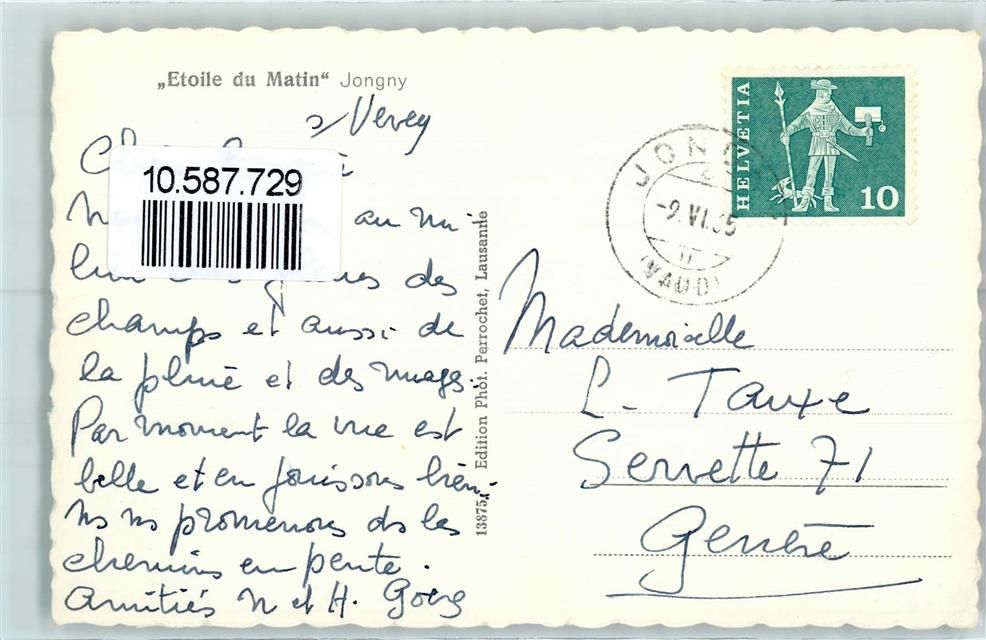 „Etoile du Matin“ Jongny
s/Vevey
10.587.729
au mi-
des
champs et aussi de
la pluie et des nuages.
Par moment la vue est
belle et en jouissons bien.
Ns ns promenons ds les
chemins en pente.
Amitiés N et H. Goerg
13875 Edition Phot. Perrochet, Lausanne
HELVETIA
10
JONGNY
-9.VI.65
(VAUD)
Mademoiselle
L. Tauxe
Servette 71
Genève